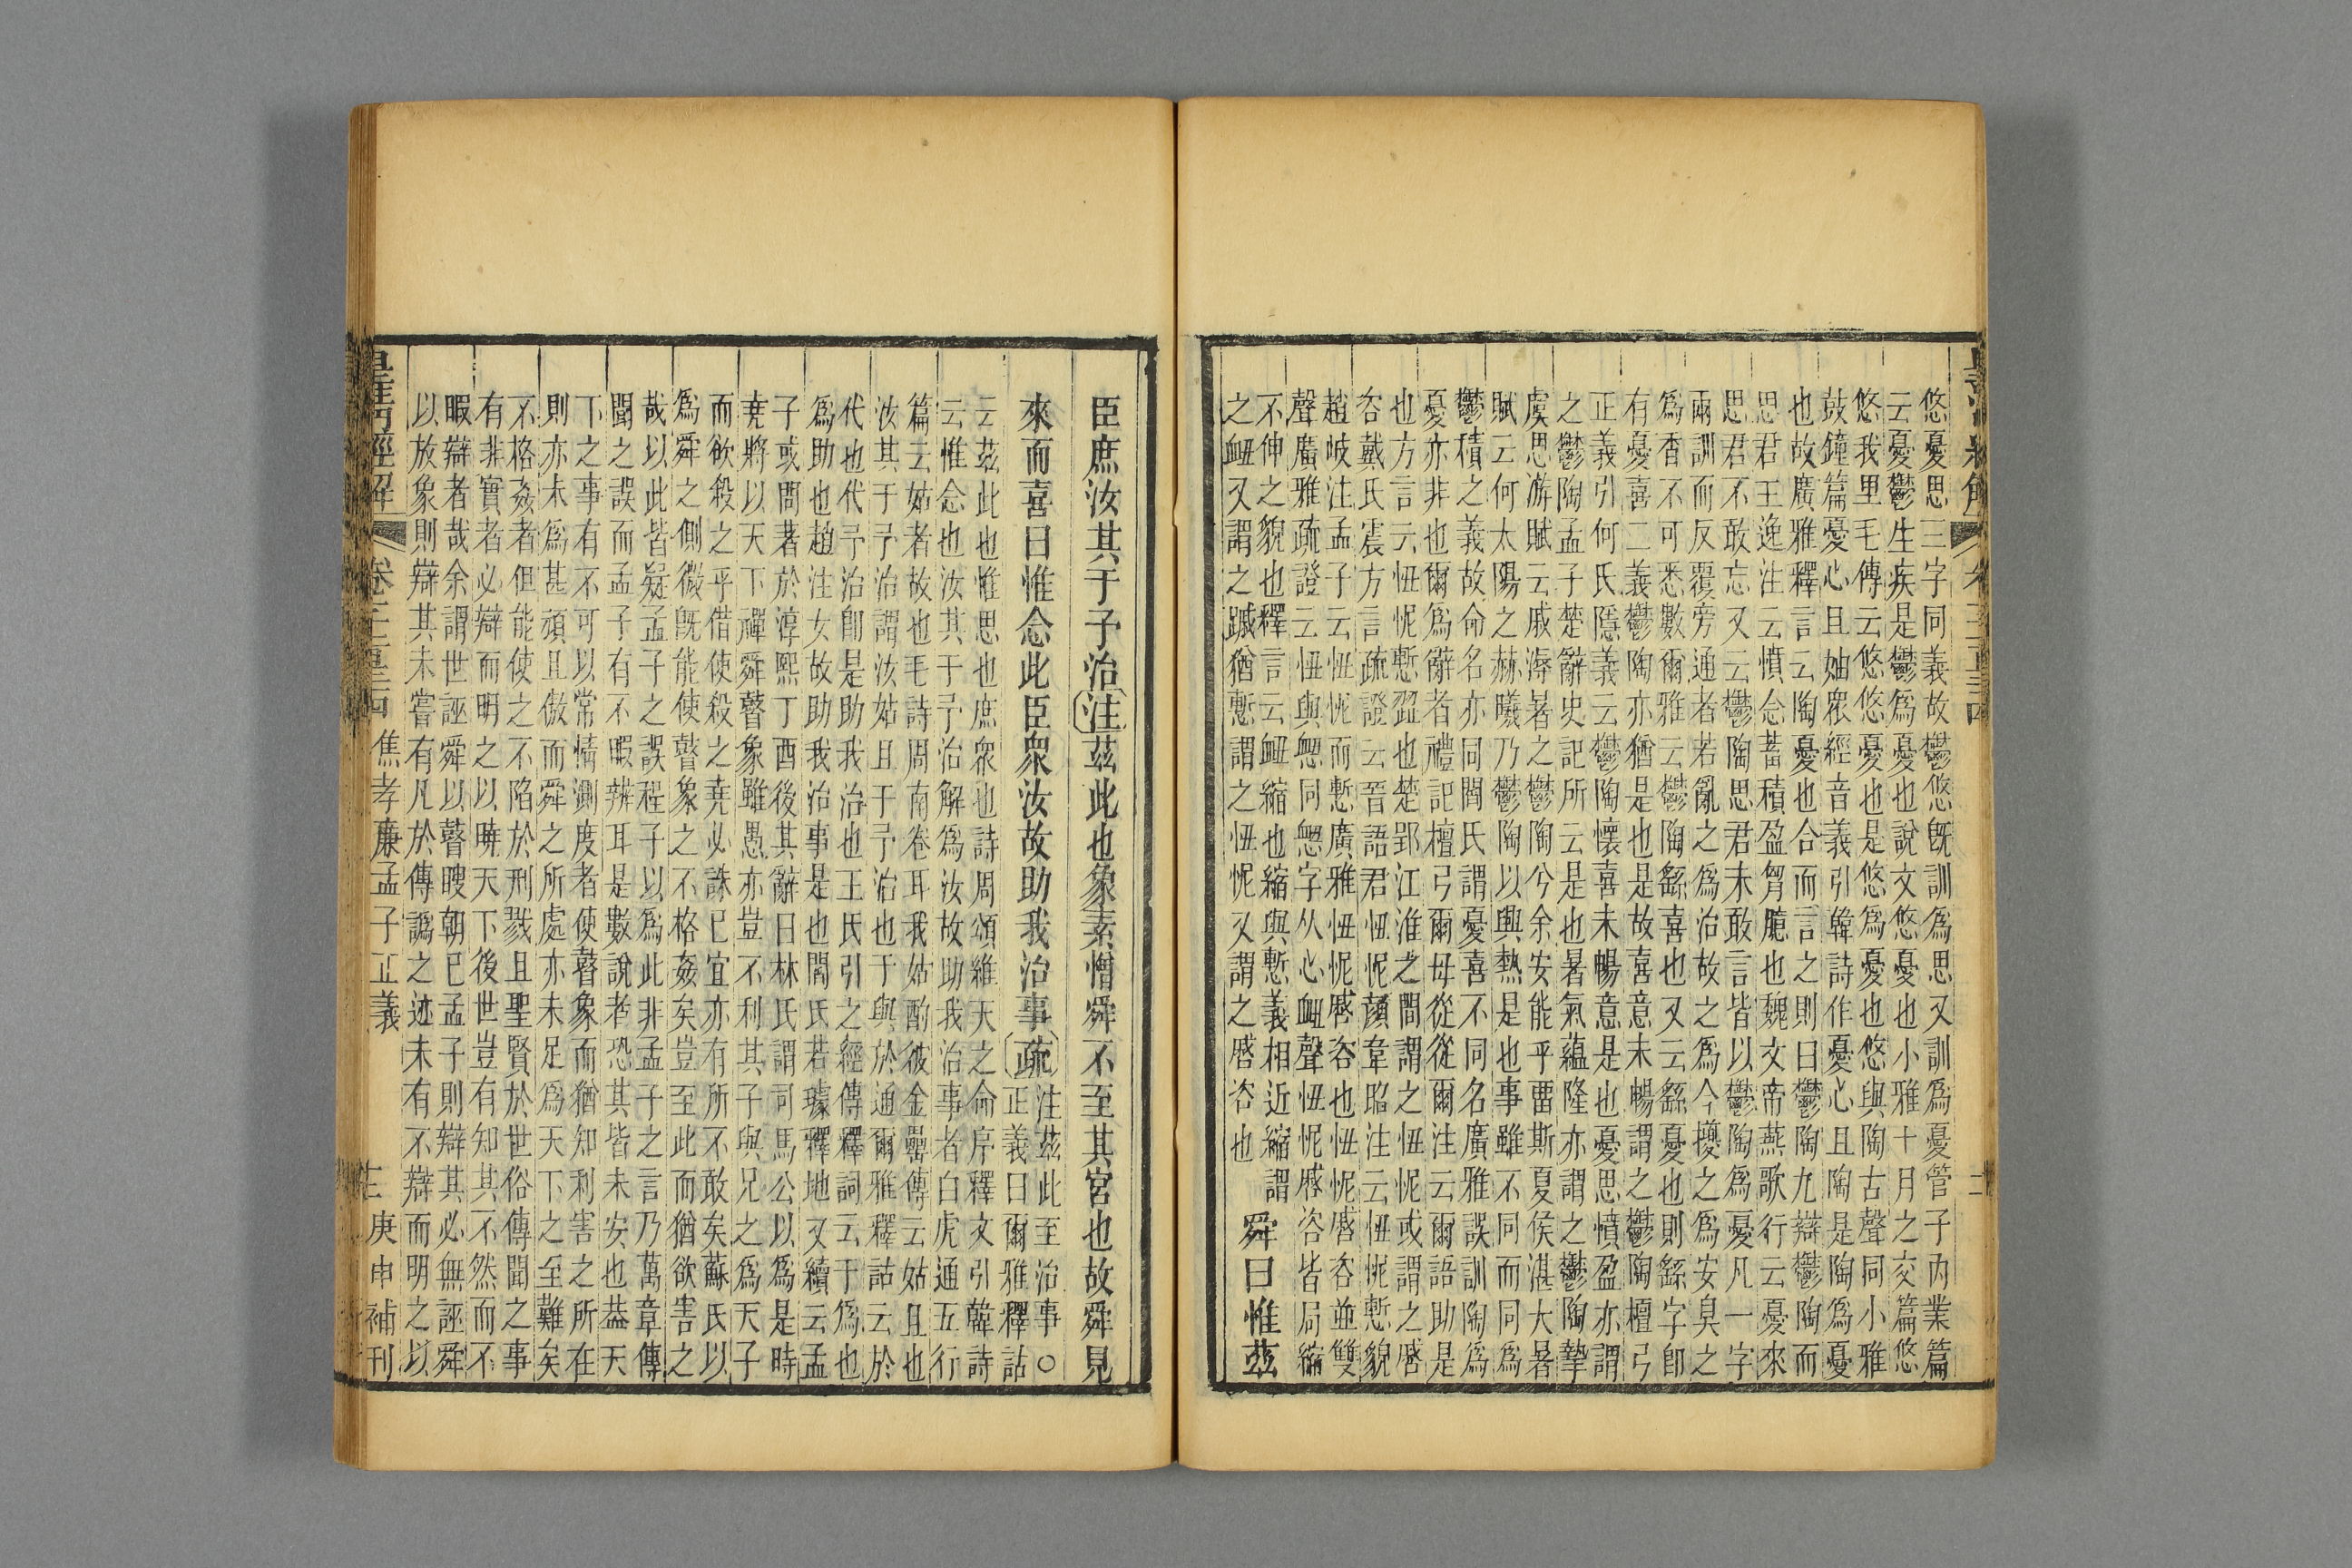 悠憂思三字同義故鬱悠旣訓爲思又訓爲憂管子內業篇
云憂鬱生疾是鬱爲憂也說文悠憂也小雅十月之交篇悠
悠我里毛傳云悠悠憂也是悠爲憂也悠與陶古聲同小雅
鼓鐘篇憂心且妯衆經音義引韓詩作憂心且陶是陶爲憂
也故廣雅釋言云陶憂也合而言之則曰鬱陶九辯鬱陶而
思君王逸注云憤念蓄積盈胷臆也魏文帝燕歌行云憂來
思君不敢忘又云鬱陶思君未敢言皆以鬱陶爲憂凡一字
兩訓而反覆旁通者若亂之爲治故之爲今擾之爲安臭之
爲香不可悉數爾雅云鬱陶繇喜也又云繇憂也則繇字卽
有憂喜二義鬱陶亦猶是也是故喜意未暢謂之鬱陶檀弓
正義引何氏隱義云鬱陶懷喜未暢意是也憂思憤盈亦謂
之鬱陶孟子楚辭史記所云是也暑氣蘊隆亦謂之鬱陶摯
虞思游賦云戚溽暑之鬱陶兮余安能乎畱斯夏侯湛大暑
賦云何太陽之赫曦乃鬱陶以興熱是也事雖不同而同爲
鬱積之義故命名亦同閻氏謂憂喜不同名廣雅誤訓陶爲
憂亦非也爾爲辭者禮記檀弓爾毋從從爾注云爾語助是
也方言云忸怩慙歰也楚郢江淮之間謂之忸怩或謂之𢠢
咨戴氏震方言疏證云晉語君忸怩顏韋昭注云忸怩慙貌
趙岐注孟子云忸怩而慙廣雅忸怩𢠢咨也忸怩𢠢咨並雙
聲廣雅疏證云忸與恧同恧字从心衄聲忸怩𢠢咨皆局縮
不伸之貌也釋言云衄縮也縮與慙義相近縮謂
之衄又謂之𧿳猶慙謂之忸怩又謂之𢠢咨也
舜曰惟茲
臣庶汝其于予治〔注〕茲此也象素憎舜不至其宮也故舜見
來而喜曰惟念此臣衆汝故助我治事〔疏〕注茲此至治事○
正義曰爾雅釋詁
云茲此也惟思也庶衆也詩周頌維天之命序釋文引韓詩
云惟念也汝其于予治解爲汝故助我治事者白虎通五行
篇云姑者故也毛詩周南卷耳我姑酌彼金罍傳云姑且也
汝其于予治謂汝姑且于予治也于與於通爾雅釋詁云於
代也代予治卽是助我治也王氏引之經傳釋詞云于爲也
爲助也趙注女故助我治事是也閻氏若璩釋地又續云孟
子或問著於淳熙丁酉後其辭曰林氏謂司馬公以爲是時
堯將以天下禪舜瞽象雖愚亦豈不利其子與兄之爲天子
而欲殺之乎借使殺之堯必誅已宜亦有所不敢矣蘇氏以
爲舜之側微旣能使瞽象之不格姦矣豈至此而猶欲害之
哉以此皆疑孟子之誤程子以爲此非孟子之言乃萬章傳
聞之誤而孟子有不暇辨耳是數說者恐其皆未安也葢天
下之事有不可以常情測度者使瞽象而猶知利害之所在
則亦未爲甚頑且傲而舜之所處亦未足爲天下之至難矣
不格姦者但能使之不陷於刑戮且聖賢於世俗傳聞之事
有非實者必辯而明之以曉天下後世豈有知其不然而不
暇辯者哉余謂世誣舜以瞽瞍朝已孟子則辯其必無誣舜
以放象則辯其未嘗有凡於傳譌之迹未有不辯而明之以
皇淸經解 卷千一百三十四 焦孝廉孟子正義 庚申補刊